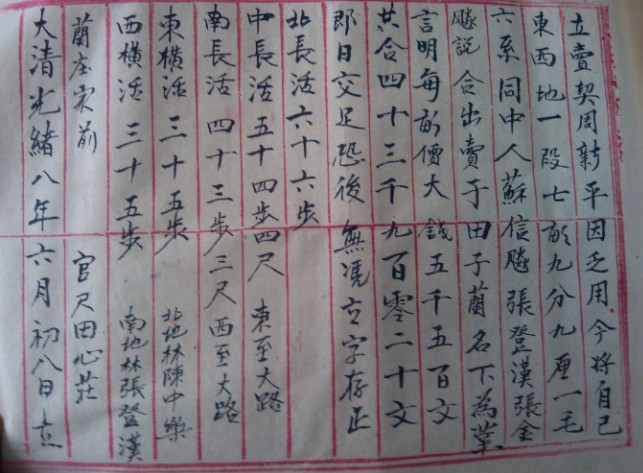 立賣契周新平因乏用今將自己
東西地一段七畝九分九厘一毛
六系同中人蘇信勝張登漢張金
勝説合出賣于田子蘭名下為業
言明每畝價大錢五千五百文
共合四十三千九百零二十文
即日交足恐後無馮立字存正
北長活六十六步
中長活五十四步四尺 東至大路
南長活四十三步三尺 西至大路
東橫活三十五步 北地林陳中樂
西橫活三十五步 南地林張登漢
蘭庄宋前 官尺田心莊
大清光緒八年六月初八日立